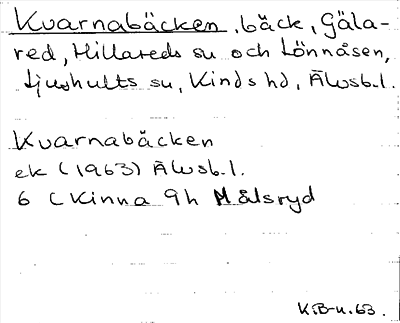 Kvarnabäcken, bäck, Gäla-
red, Hillareds sn och Lönnåsen,
Ljushults sn, Kinds hd, Älvsb.l.
Kvarnabäcken
ek (1963) Älvsb.l.
6 C Kinna 9h Målsryd
K:B-n.63.